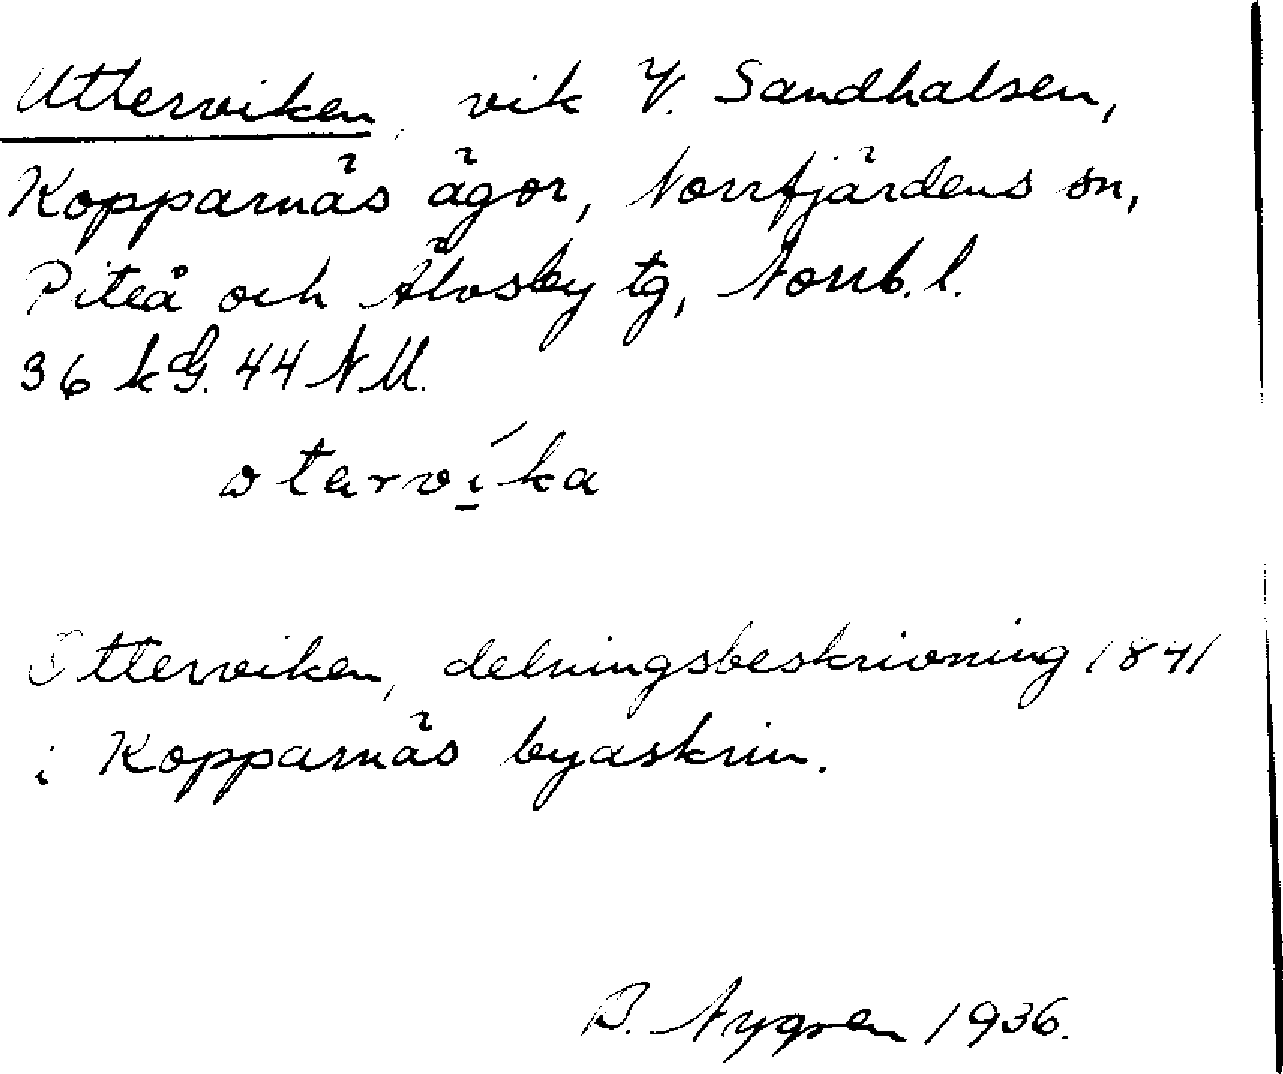 Utterviken, vik V. Sandhalsen,
Kopparnäs ägor, Norrfjärdens sn,
Piteå och Älvsby tg, Norrb. l.
36 k G. 44 N M.
ωtarví̱ka
Otterviken, delningsbeskrivning 1841
i Kopparnäs byaskrin.
B. Nygren 1936.